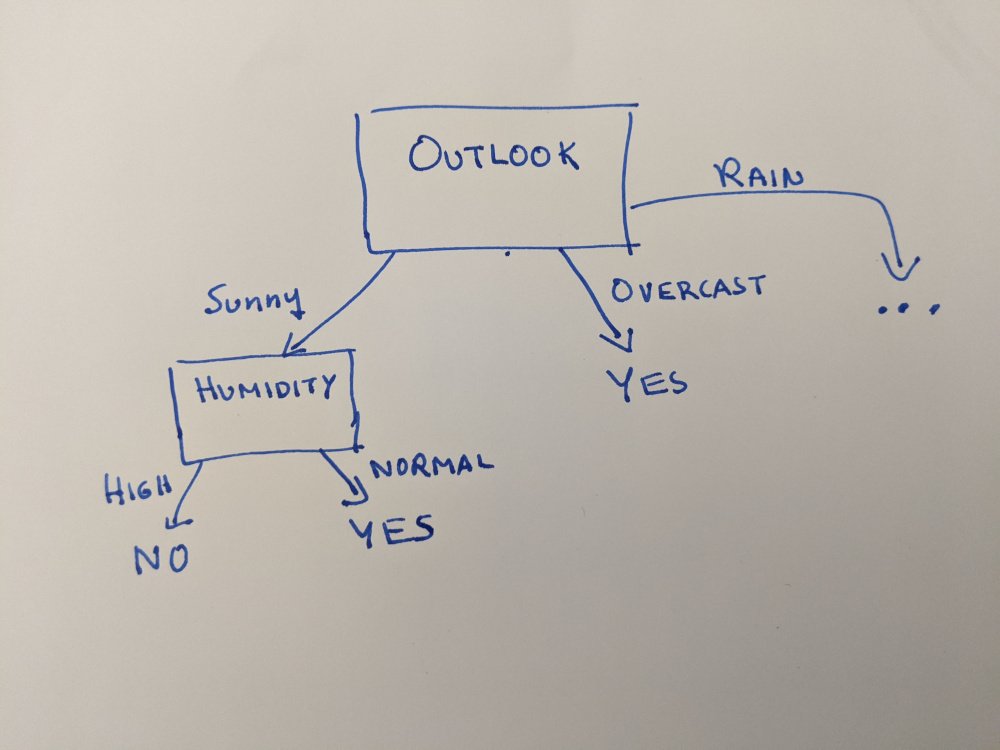 OUTLOOK
RAIN
Sunny
OVERCAST
...
YES
HUMIDITY
HIGH
NORMAL
NO
YES